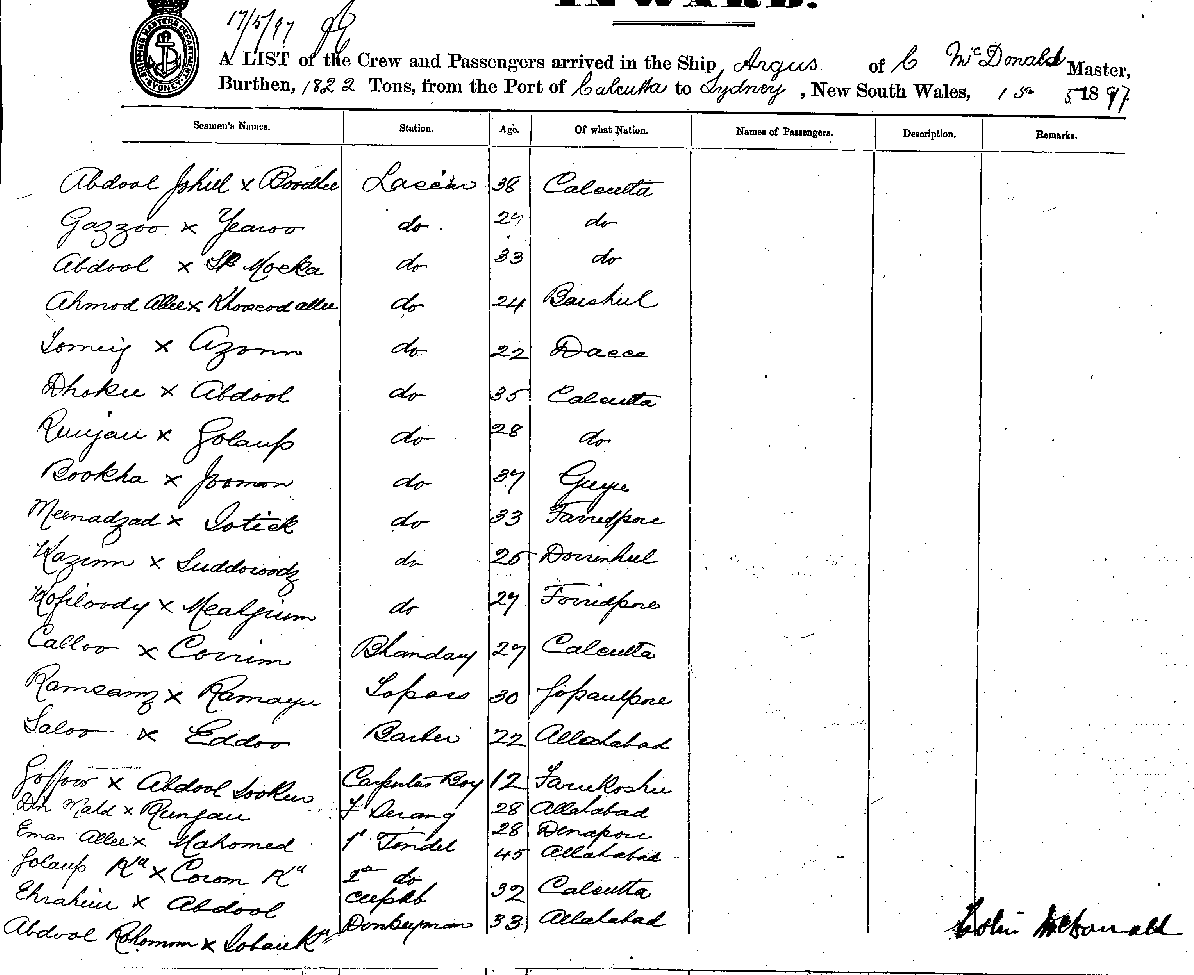 INWARD.
17/5/97
A LIST of the Crew and Passengers arrived in the Ship, Argus. of C McDonald Master,
Burthen, 1822 Tons, from the Port of Calcutta to Sydney, New South Wales, 15 5 1897
Seamen's Names. Station. Age. Of what Nation. Names of Passengers. Description. Remarks.
Abdool x Boodhu Lascar 38 Calcutta
Gazzoo x Yearoo do 27 do
Abdool x Sk Mocka do 33 do
Ahmod Allee x Khoorod allee do 24 Barshul
x Azonn do 22 Dacca
Dhoku x Abdool do 35 Calcutta
Runjau x Golaup do 28 do
Bookha x Jooman do 37
Meenadzad x Sotick do 33 Farridpore
Kazimn x do 25
Kofiloody x do 27 Forridpore
Calloo x Corrim Bhandary 27 Calcutta
Ramsamy x Ramaya Topass 30 Gopaulpore
Saloo x Eddoo Barber 22 Allahabad
Goffoor x Abdool Sookur Carpenter Boy 12
Din Mahd x Runjau Serang 28 Allahabad
Eman Allee x Mahomed 1st Tindel 28 Denapore
Golaup Kn x Corom Kn 2nd do 45 Allahabad
Ebrahim x Abdool 32 Calcutta
Abdool Rohomon x Donkeyman 33 Allahabad
Colin McDonald